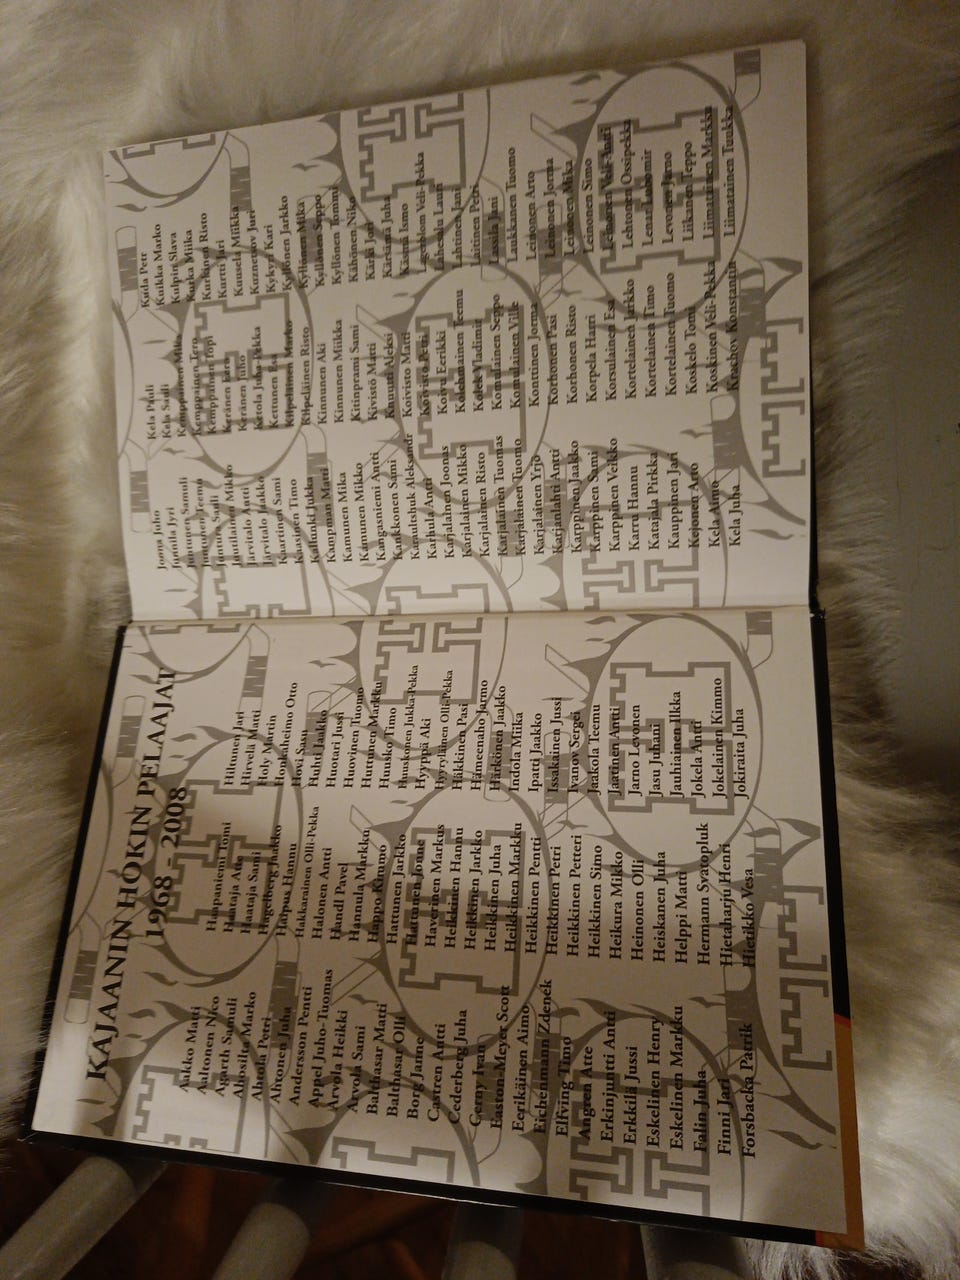 KAJAANIN HOKIN PELAAJAT
1968 - 2008
Aakko Matti
Aaltonen Nico
Agarth Samuli
Ahosilta Marko
Ahtola Petri
Ahtonen Juha
Andersson Pentti
Appel Juho-Tuomas
Arvola Heikki
Arvola Sami
Balthasar Matti
Balthasar Olli
Borg Janne
Castren Antti
Cederberg Juha
Cerny Ivan
Easton-Meyer Scott
Eerikäinen Aimo
Eichenmann Zdenek
Elfving Timo
Angren Atte
Erkinjuntti Antti
Erkkilä Jussi
Eskelinen Henry
Eskelinen Markku
Falin Juha
Finni Jari
Forsbacka Patrik
Haapaniemi Tomi
Haataja Arto
Haataja Sami
Hagelberg Jaakko
Haipus Hannu
Hakkarainen Olli-Pekka
Halonen Antti
Handl Pavel
Hannula Markku
Happo Kimmo
Hattunen Jarkko
Hattunen Jonne
Haverinen Markus
Heikkinen Hannu
Heikkinen Jarkko
Heikkinen Juha
Heikkinen Markku
Heikkinen Pentti
Heikkinen Petri
Heikkinen Petteri
Heikkinen Simo
Heikura Mikko
Heinonen Olli
Heiskanen Juha
Helppi Matti
Hermann Svatopluk
Hietaharju Henri
Hietikko Vesa
Hiltunen Jari
Hirvelä Matti
Holy Martin
Honkaheimo Otto
Hovi Sasu
Huhti Jaakko
Huotari Jussi
Huovinen Tuomo
Huttunen Markku
Huusko Timo
Huuskonen Jukka-Pekka
Hyyppä Aki
Hyyryläinen Olli-Pekka
Häkkinen Pasi
Hämeenaho Jarmo
Härkönen Jaakko
Indola Miika
Ipatti Jaakko
Issakainen Jussi
Ivanov Sergei
Jaakola Teemu
Jaatinen Antti
Jarno Levonen
Jasu Juhani
Jauhiainen Ilkka
Jokela Antti
Jokelainen Kimmo
Jokiraita Juha
Jorma Juho
Juntila Jyri
Juntunen Samuli
Juntunen Teemu
Juntura Sauli
Juutilainen Mikko
Järvitalo Antti
Järvitalo Jaakko
Kaartinen Sami
Kaasinen Timo
Kallunki Jukka
Kampman Matti
Kamunen Mika
Kamunen Mikko
Kangasniemi Antti
Kaukkonen Sami
Kamuishuk Aleksandr
Karhula Antti
Karjalainen Joonas
Karjalainen Mikko
Karjalainen Risto
Karjalainen Tuomas
Karjalainen Tuomo
Karjalainen Yrjö
Karjanlahti Antti
Karppinen Jaakko
Karppinen Sami
Karppinen Veikko
Karru Hannu
Katajala Pirkka
Kauppinen Jari
Kejonen Arto
Kela Arno
Kela Juha
Kela Pauli
Kela Sauli
Kemppainen Mika
Kemppainen Tero
Kemppainen Topi
Keränen Eero
Keränen Juho
Ketola Juha-Pekka
Kettunen Esa
Kilpeläinen Marko
Kilpeläinen Risto
Kinnunen Aki
Kinnunen Miikka
Kitinprami Sami
Kivistö Matti
Knuuti Aleksi
Koivisto Matti
Koivisto Petri
Koivu Eerikki
Kolehmainen Teemu
Kolek Vladimir
Komulainen Seppo
Komulainen Ville
Konttinen Jorma
Korhonen Pasi
Korhonen Risto
Korpela Harri
Korsulainen Esa
Kortelainen Jarkko
Kortelainen Timo
Kortelainen Tuomo
Koskelo Tomi
Koskinen Veli-Pekka
Krachov Konstantin
Kuda Petr
Kuikka Marko
Kulpin Slava
Kurka Miika
Kurkinen Risto
Kurtti Jari
Kuusela Miikka
Kuznetsov Juri
Kykyri Kari
Kyllönen Jarkko
Kyllönen Mika
Kyllönen Seppo
Kyllönen Tommi
Kähönen Niko
Kärki Jari
Kärsämä Juha
Käsmä Ismo
Lagerblom Veli-Pekka
Lahesalu Lauri
Lahtinen Jani
Laitinen Petri
Lassila Jani
Laukkanen Tuomo
Leinonen Arto
Leinonen Jorma
Leinonen Mika
Leinonen Simo
Leinonen Veli-Antti
Lehtonen Ossipekka
Lenar Lubomir
Levonen Jarno
Liikanen Teppo
Liimatainen Markku
Liimatainen Tuukka